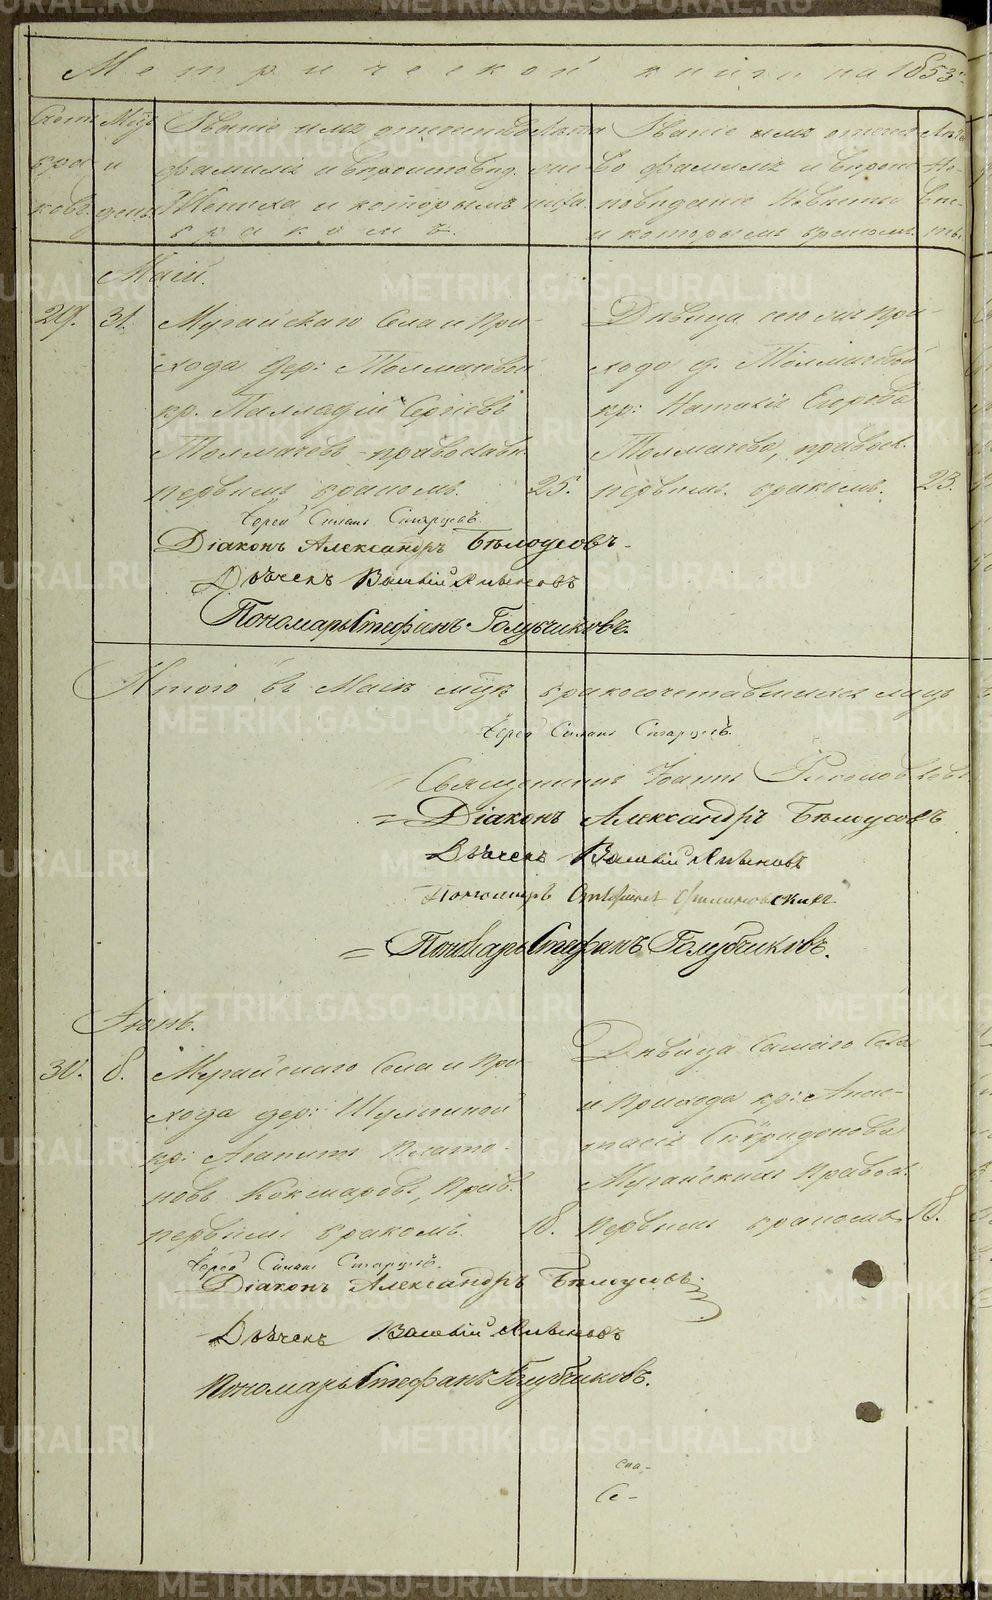 Метрической книги на 1853
Счетъ
бра
ковъ.
Мѣц
и
день
Званіе имя отечество
фамилія и вѣроисповѣд.
Жениха и которымъ
бракомъ.
Лѣта
же
ниха.
Званіе имя отчест
во фамилія и вѣрои
повѣданіе Невѣсты
и которымъ бракомъ.
Лѣта
Не-
вѣс
ты.
Маій.
29. 31.
Мугайскаго Села и При-
хода дер: Толмачевой
кр. Палладій Сергіевъ
Толмачевъ православн.
первымъ бракомъ. 25.
Дѣвица того же При-
хода д. Толмачевой
кр: Наталія Егорова
Толмачева, правосл.
первымъ бракомъ. 23.
Іерей Симеонъ
Діаконъ Александръ Бѣлоусовъ
Дьячекъ Василій
Пономарь Стефанъ Голубчиковъ.
Итого въ Маіѣ мцѣ бракосочетавшихся лицъ
Іерей Симеонъ
Священникъ Іоаннъ
Діаконъ Александръ Бѣлоусовъ
Дьячекъ Василій
Пономарь Стефанъ
Пономарь Стефанъ Голубчиковъ.
Іюнь.
30. 8.
Мугайскаго Села и При
хода дер: Шулгиной
кр: Агапитъ Плато-
новъ Кокшаровъ, Прав.
первымъ бракомъ. 18.
Дѣвица Самаго Села
и Прихода кр: Анас-
тасія Спѵридонова
Мугайскихъ Правосл.
Первымъ бракомъ. 18.
Іерей Симеонъ
Діаконъ Александръ Бѣлоусовъ.
Дьячекъ Василій
Пономарь Стефанъ Голубчиковъ.
METRIKI.GASO-URAL.RU